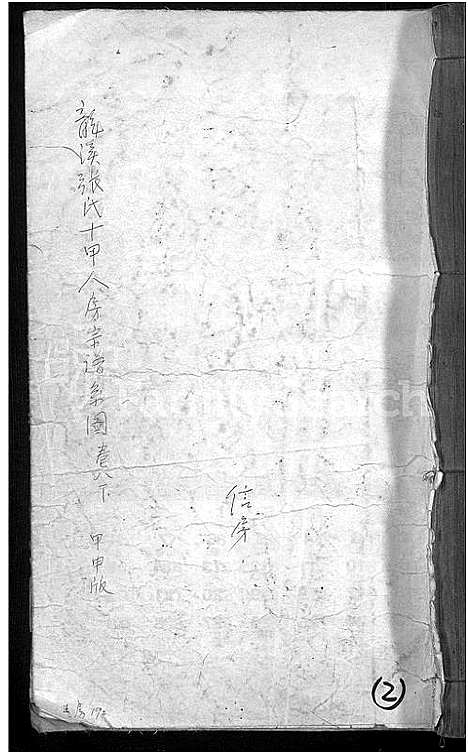 龍溪張氏十甲人房宗譜系圖 下 甲申版
信房
2
FamilySearch